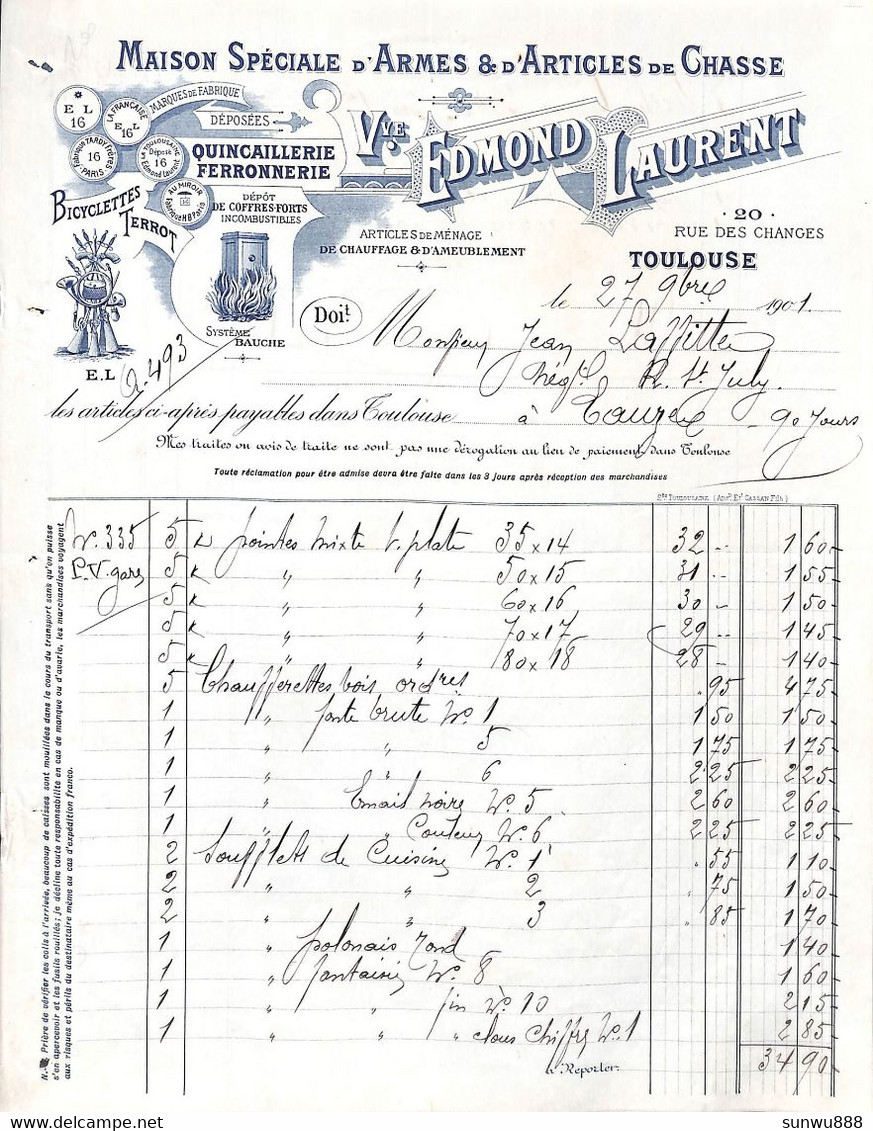 MAISON SPÉCIALE D'ARMES & D'ARTICLES DE CHASSE
MARQUES DE FABRIQUE
DÉPOSÉES
E L 16
LA FRANÇAISE E L 16
Fabrique TARDY Frères 16 PARIS
TOULOUSAINE Déposé 16 Edmond Laurent
AU MIROIR Fabrique H B Paris
Vve EDMOND LAURENT
QUINCAILLERIE
FERRONNERIE
BICYCLETTES
TERROT
DÉPÔT
DE COFFRES-FORTS
INCOMBUSTIBLES
SYSTÈME
BAUCHE
E.L
ARTICLES DE MÉNAGE
DE CHAUFFAGE & D'AMEUBLEMENT
· 20 ·
RUE DES CHANGES
TOULOUSE
le 27 9bre 1901.
Doit
Monsieur Jean Laffitte
Négt R. St July
A-493
les articles ci-après payables dans Toulouse à Cauze 90 Jours
Mes traites ou avis de traite ne sont pas une dérogation au lieu de paiement dans Toulouse
Toute réclamation pour être admise devra être faite dans les 3 jours après réception des marchandises
Sté TOULOUSAINE (Ancn. Et CASSAN Fils)
N.-B. Prière de vérifier les colis à l'arrivée, beaucoup de caisses sont mouillées dans le cours du transport sans qu'on puisse
s'en apercevoir et les fusils rouillés; je décline toute responsabilité en cas de manque ou d'avarie, les marchandises voyagent
aux risques et périls du destinataire même au cas d'expédition franco.
No. 335 5 K pointes mixte t. plate 35 x 14 32 .. 1 60
P.V. gare 5 K " " 50 x 15 31 .. 1 55
5 K " " 60 x 16 30 .. 1 50
5 K " " 70 x 17 29 .. 1 45
5 K " " 80 x 18 28 .. 1 40
5 Chaufferettes bois ordres . 95 4 75
1 " fonte brute No. 1 1 50 1 50
1 " " 5 1 75 1 75
1 " " 6 2 25 2 25
1 " Email noire No. 5 2 60 2 60
1 " " Couleur No. 6 2 25 2 25
2 Soufflets de Cuisine No. 1 . 55 1 10
2 " " 2 . 75 1 50
2 " " 3 . 85 1 70
1 " polonais rond 1 40
1 " fantaisie No. 8 1 60
1 " " fin No. 10 2 15
1 " " " clous chiffre No. 1 2 85
à Reporter. 34 90
sunwu888